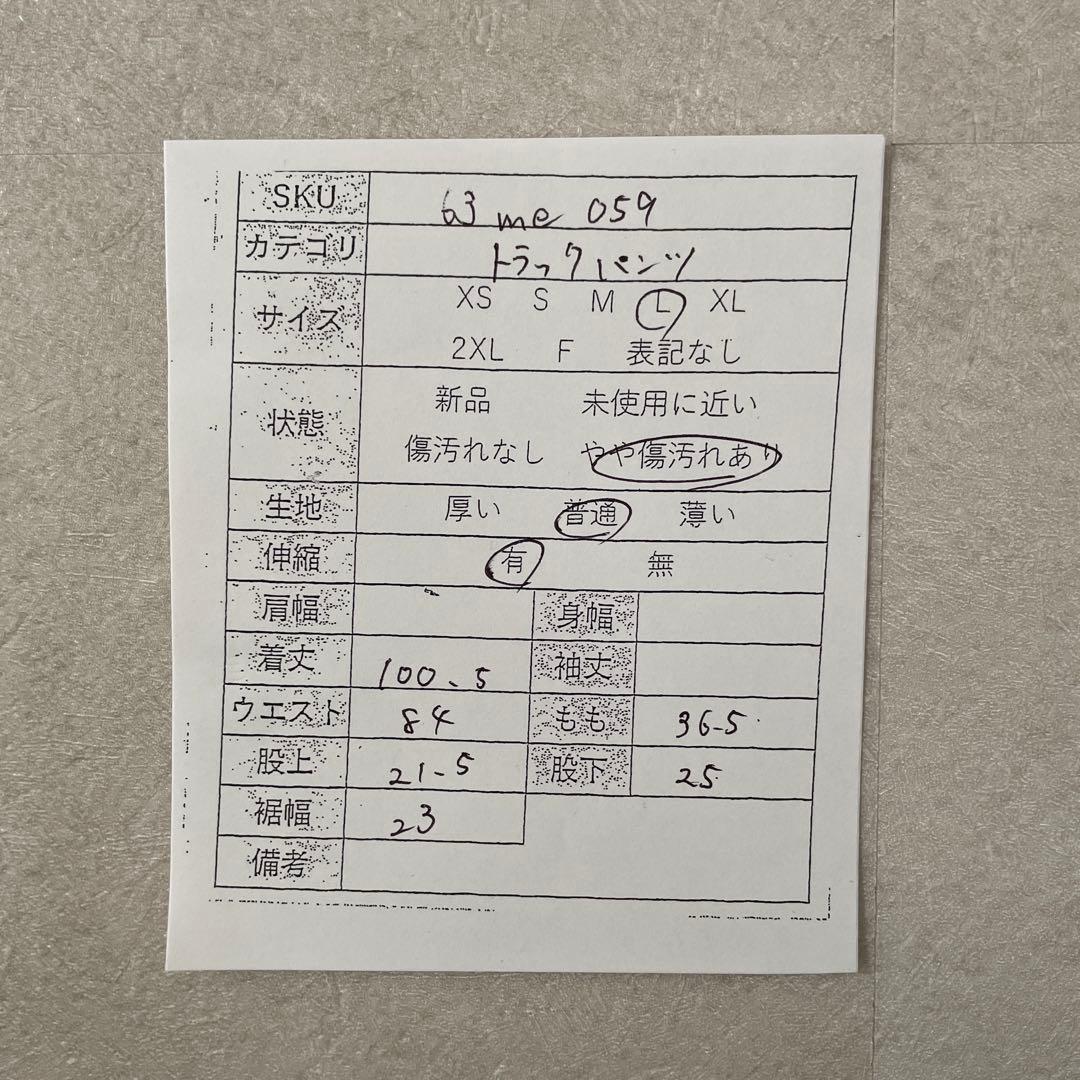 SKU 63 me 059
カテゴリ トラックパンツ
サイズ XS S M L XL
2XL F 表記なし
状態 新品 未使用に近い
傷汚れなし やや傷汚れあり
生地 厚い 普通 薄い
伸縮 有 無
肩幅 身幅
着丈 100.5 袖丈
ウエスト 84 もも 36.5
股上 21.5 股下 25
裾幅 23
備考